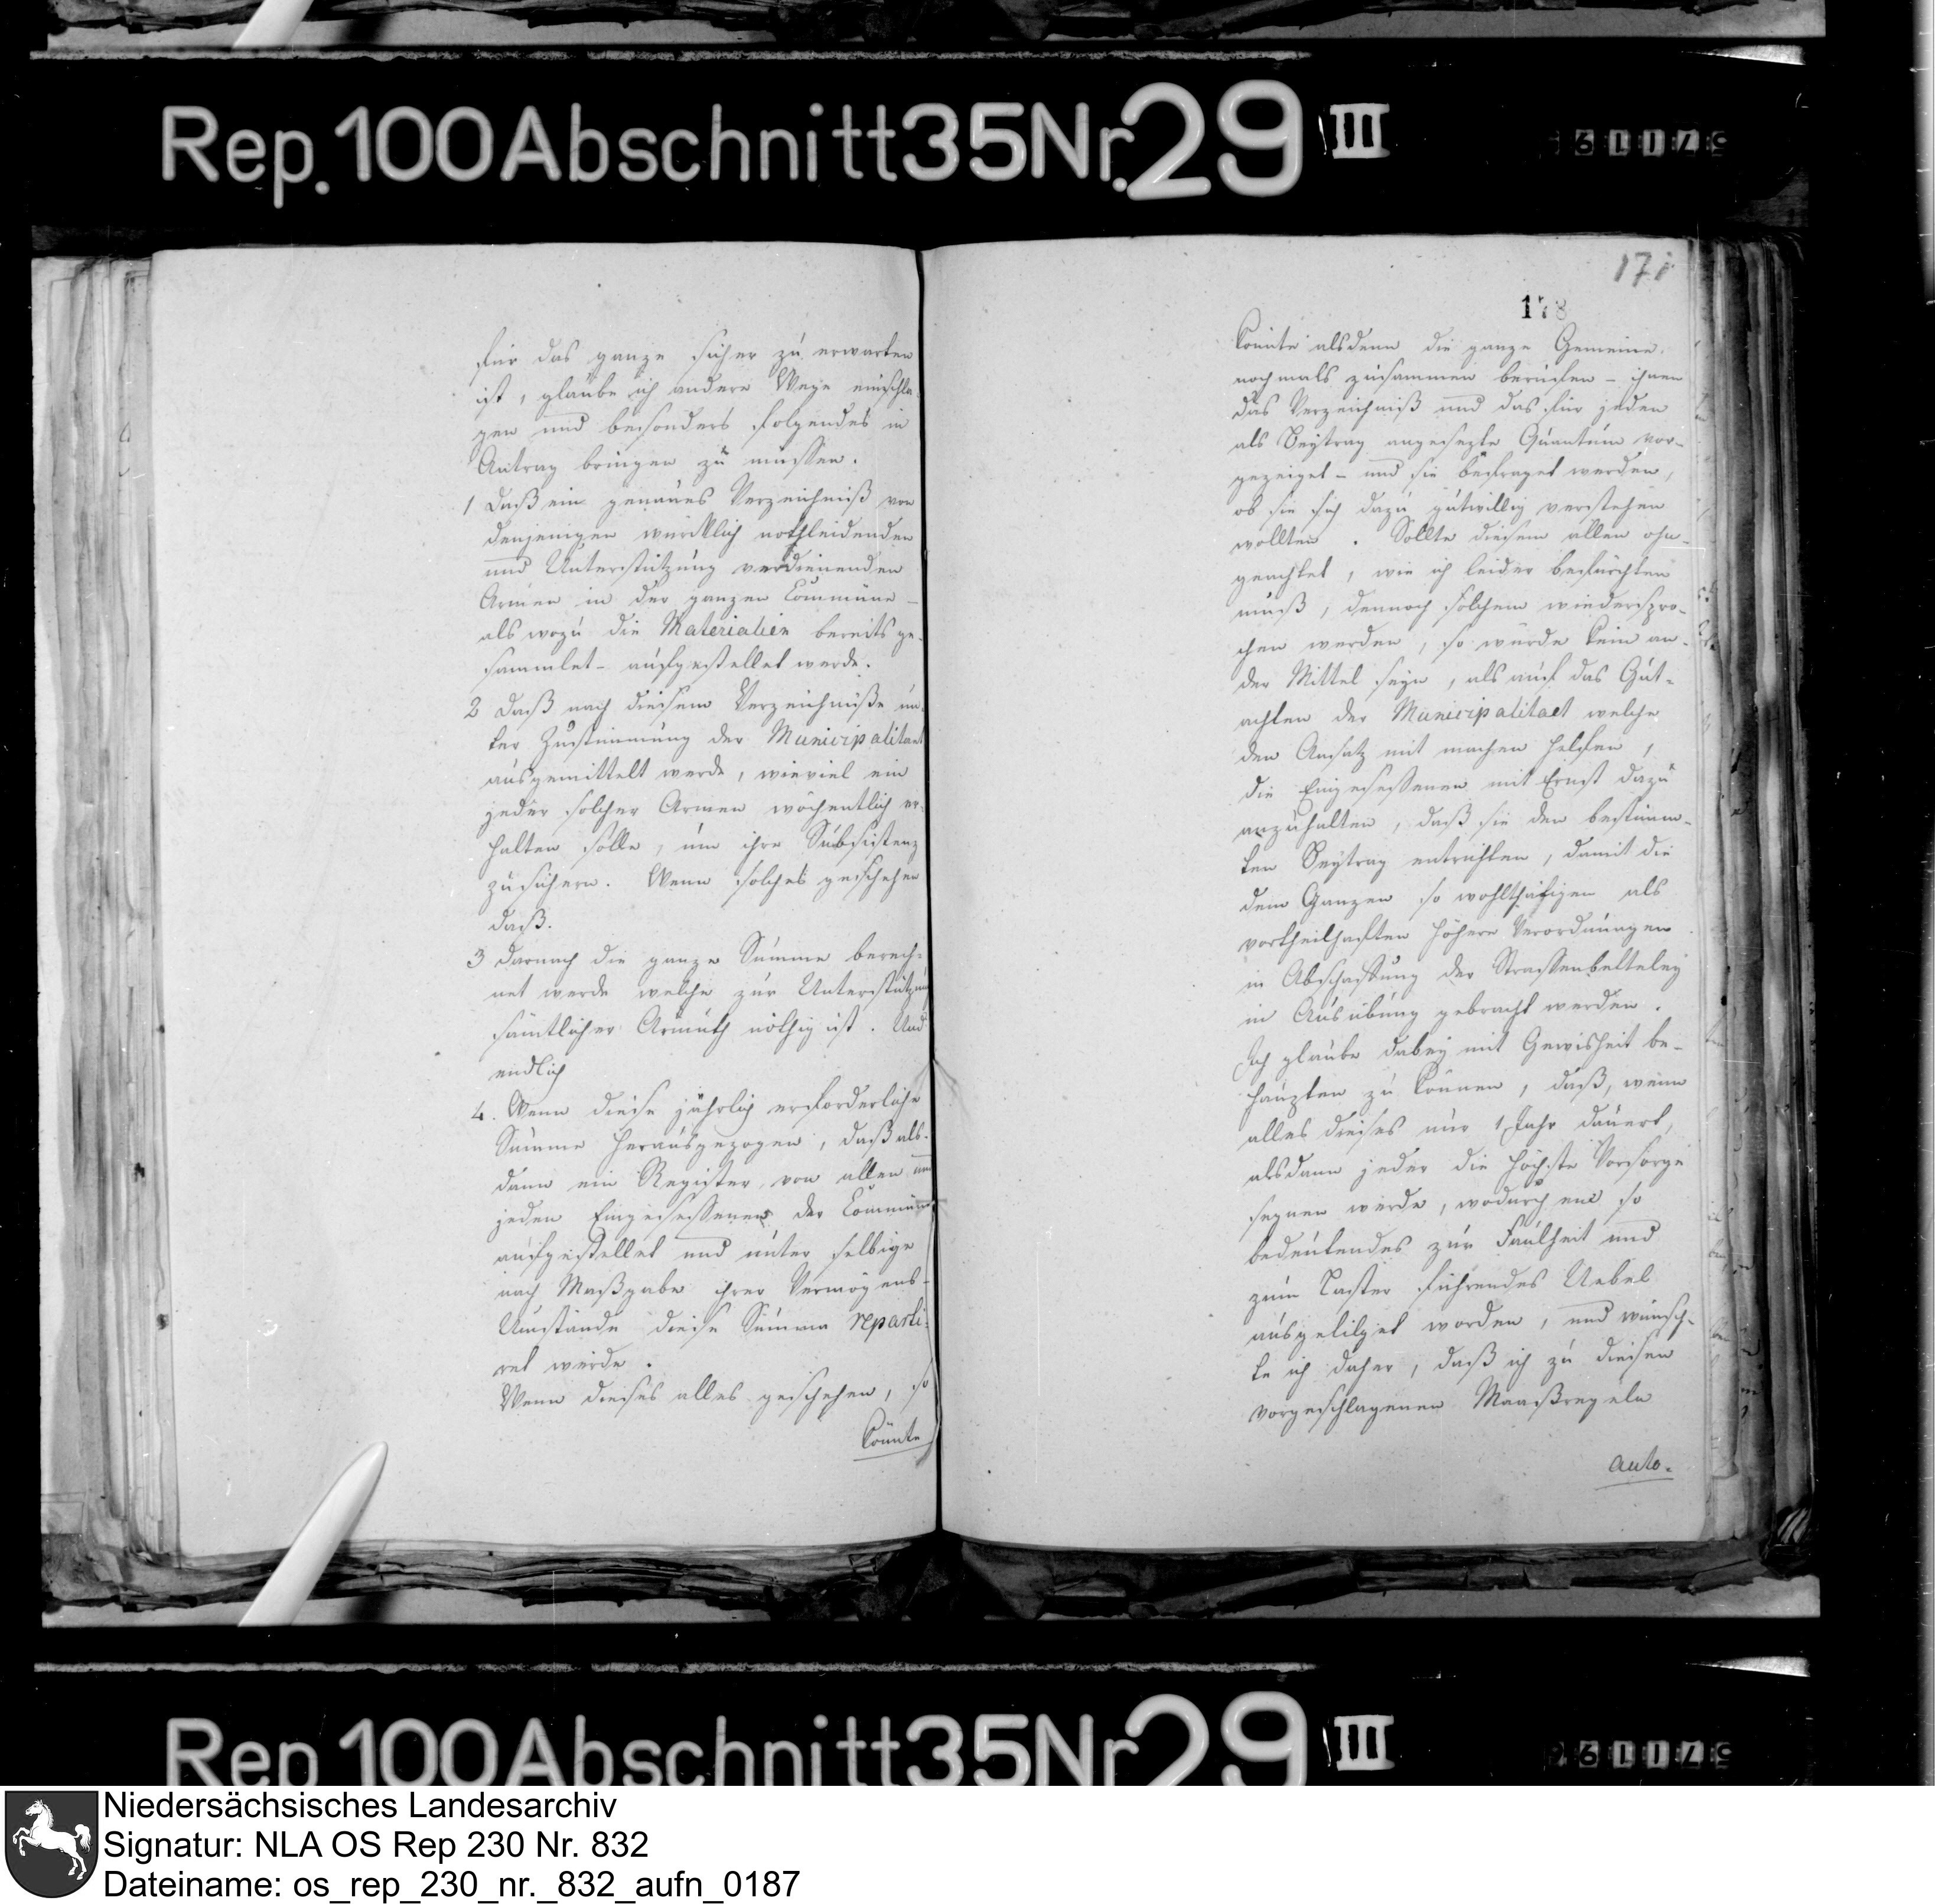 Rep. 100 Abschnitt 35 Nr. 29 III
für das ganze sicher zu erwarten
ist, glaube ich andere Wege einschla-
gen und besonders folgendes in
Antrag bringen zu müssen.
1 Daß ein genaues Verzeichniß von
denjenigen würcklich nothleidenden
und Unterstützung verdienenden
Armen in der ganzen Commüne –
als wozu die Materialien bereits ge-
sammlet – aufgestellet werde.
2 Daß nach diesem Verzeichniße un-
ter Zustimmung der Municipalitaet
ausgemittelt werde, wieviel ein
jeder solcher Armen wöchentlich er-
halten solle, um ihre Subsistenz
zusichern. Wenn solches geschehen
daß.
3 darnach die ganze Summe berech-
net werde welche zur Unterstützung
sämtlicher Armuth nöthig ist. Und
endlich
4. Wenn diese jährlich erforderliche
Summe herausgezogen, daß als-
dann ein Register von allen und
jeden Eingesessenen der Commüne
aufgestellet und unter selbige
nach Maßgabe ihrer Vermögens-
Umstände diese Summa reparti-
ret werde.
Wenn dieses alles geschehen, so
könnte
178
könnte alsdenn die ganze Gemeine
nochmals zusammen berufen – ihnen
das Verzeichniß und das für jeden
als Beytrag angesezte Quantum vor-
gezeiget – und sie befraget werden,
ob sie sich dazu gutwillig verstehen
wollten. Sollte diesem allen ohn-
geachtet, wie ich leider befürchten
muß, dennoch solchem wiederspro-
chen werden, so würde kein an-
der Mittel seyn, als auf das Gut-
achten der Municipalitaet welche
den Ansatz mit machen helfen,
die Eingesessenen mit Ernst dazu
anzuhalten, daß sie den bestimm-
ten Beytrag entrichten, damit die
dem Ganzen so wohlthätigen als
vortheilhaften höhern Verordnungen
in Abschaffung der Strassenbetteley
in Ausübung gebracht werden.
Ich glaube dabey mit Gewisheit be-
haupten zu können, daß, wenn
alles dieses nur 1 Jahr dauert,
alsdann jeder die höchste Vorsorge
segnen werde, wodurch ein so
bedeutendes zur Faulheit und
zum Laster führendes Uebel
ausgetilget worden, und wünsch-
te ich daher, daß ich zu diesen
vorgeschlagenen Maaßregeln
auto-
Rep 100 Abschnitt 35 Nr 29 III
Niedersächsisches Landesarchiv
Signatur: NLA OS Rep 230 Nr. 832
Dateiname: os_rep_230_nr._832_aufn_0187